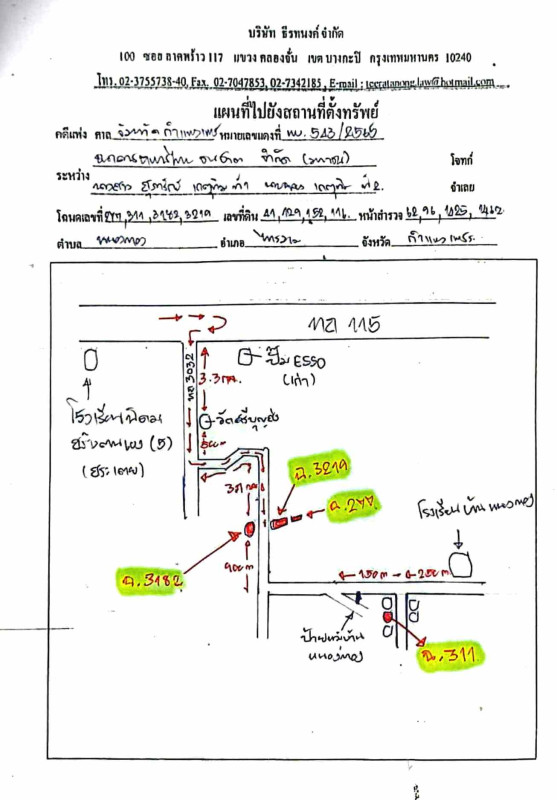 บริษัท ธีรทนงค์ จำกัด
100 ซอย ลาดพร้าว 117 แขวง คลองจั่น เขต บางกะปิ กรุงเทพมหานคร 10240
โทร. 02-3755738-40, Fax. 02-7047853, 02-7342185 , E-mail : teeratanong.law@hotmail.com
แผนที่ไปยังสถานที่ตั้งทรัพย์
คดีแพ่ง ศาล จังหวัดกำแพงเพชร หมายเลขแดงที่ ผบ. 543/2566
ธนาคารทหารไทย ธนชาต จำกัด (มหาชน) โจทก์
ระหว่าง
ที่ 1 ที่ 2. จำเลย
โฉนดเลขที่ 277, 311, 3182, 3219 เลขที่ดิน 41, 129, 152, 116. หน้าสำรวจ 62, 96, 1025, 1062
ตำบล หนองทอง อำเภอ ไทรงาม จังหวัด กำแพงเพชร
ทล 115
ทล 3032
3.3 กม.
ปั๊ม ESSO
(เก่า)
โรงเรียนนิคม
สร้างตนเอง (5)
วัด
500 m
3 กม
ฉ.3219
ฉ.277
โรงเรียนบ้านหนองทอง
ฉ.3182
900 m
150 m
250 m
ป้ายหมู่บ้าน
หนองทอง
ฉ.311